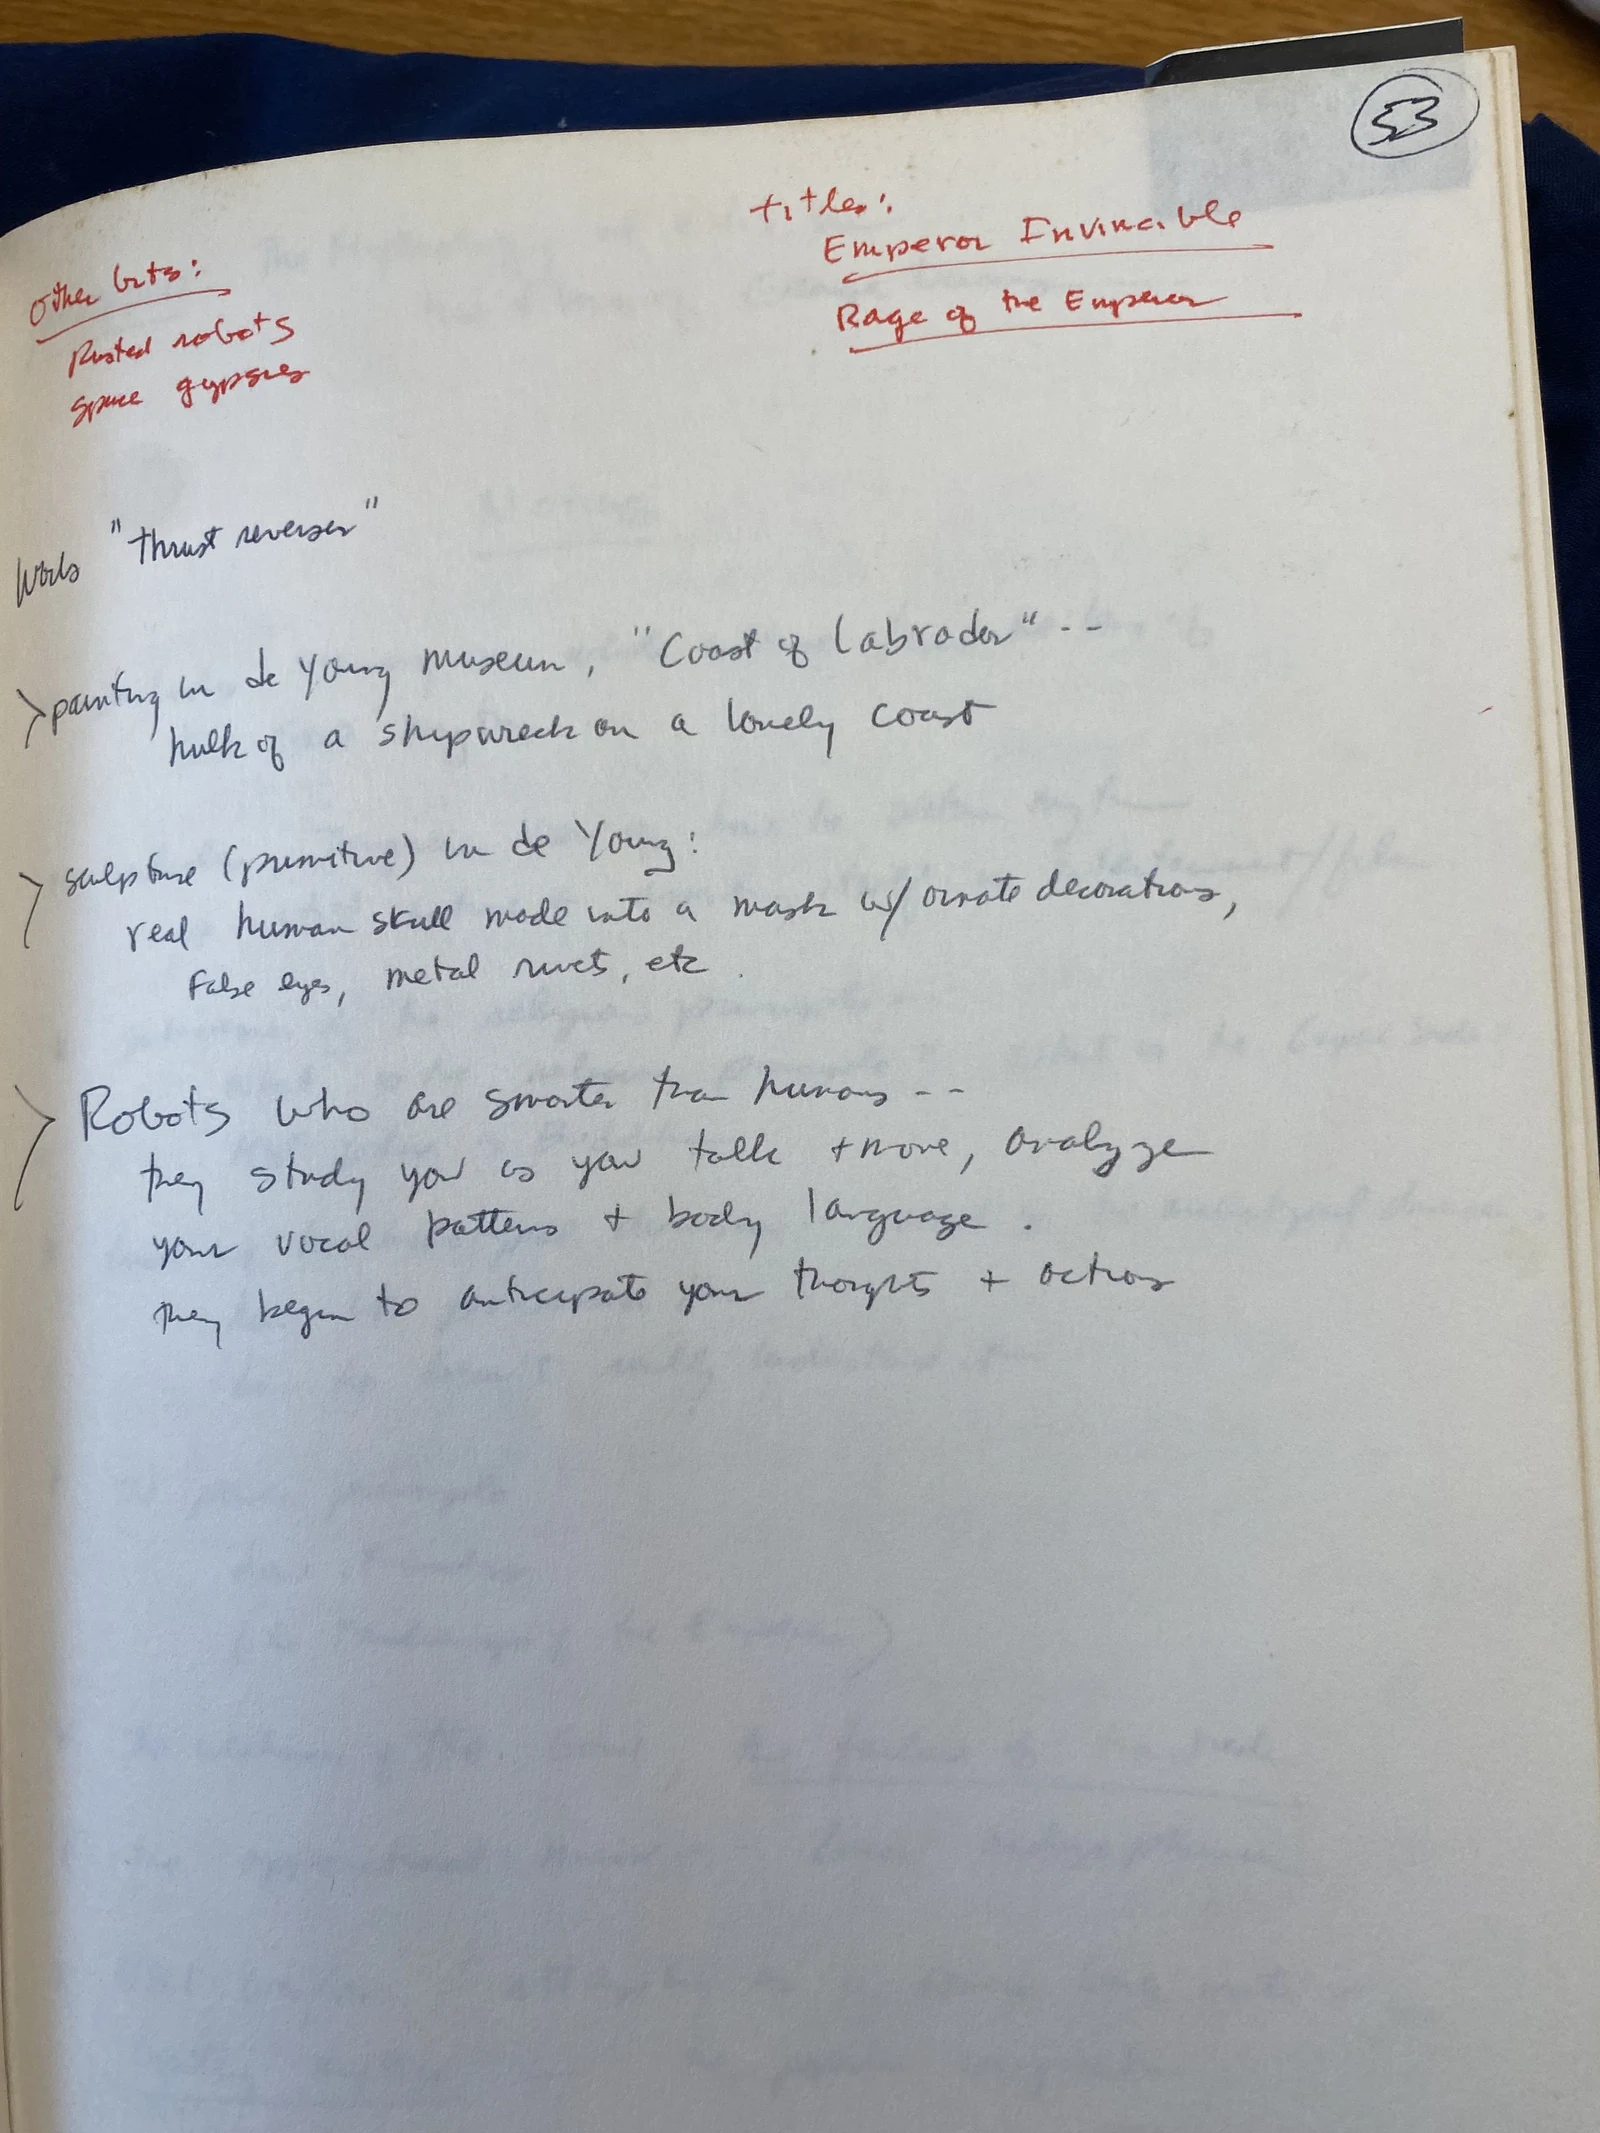 53
titles:
Emperor Invincible
Rage of the Emperor
Other bits:
Rusted robots
space gypsies
Words "thrust reverser"
> painting in de Young museum, "Coast of Labrador" --
hulk of a shipwreck on a lonely coast
> sculpture (primitive) in de Young:
real human skull made into a mask w/ ornate decorations,
false eyes, metal rivets, etc.
> Robots who are smarter than humans --
they study you as you talk + move, analyze
your vocal patterns + body language.
they begin to anticipate your thoughts + actions